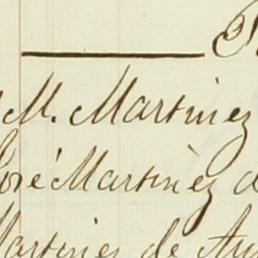 M. Martinez
José Martinez d
Martinez de